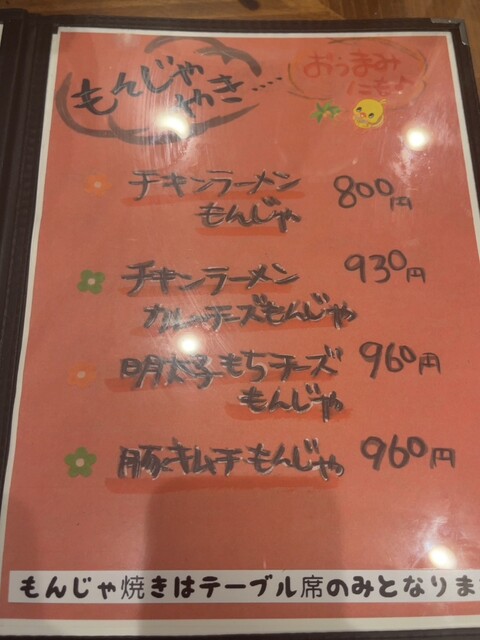 もんじゃ
やき…
おつまみ
にも♪
チキンラーメン 800円
もんじゃ
チキンラーメン 930円
カレーチーズもんじゃ
明太子もちチーズ 960円
もんじゃ
豚キムチもんじゃ 960円
もんじゃ焼きはテーブル席のみとなりま